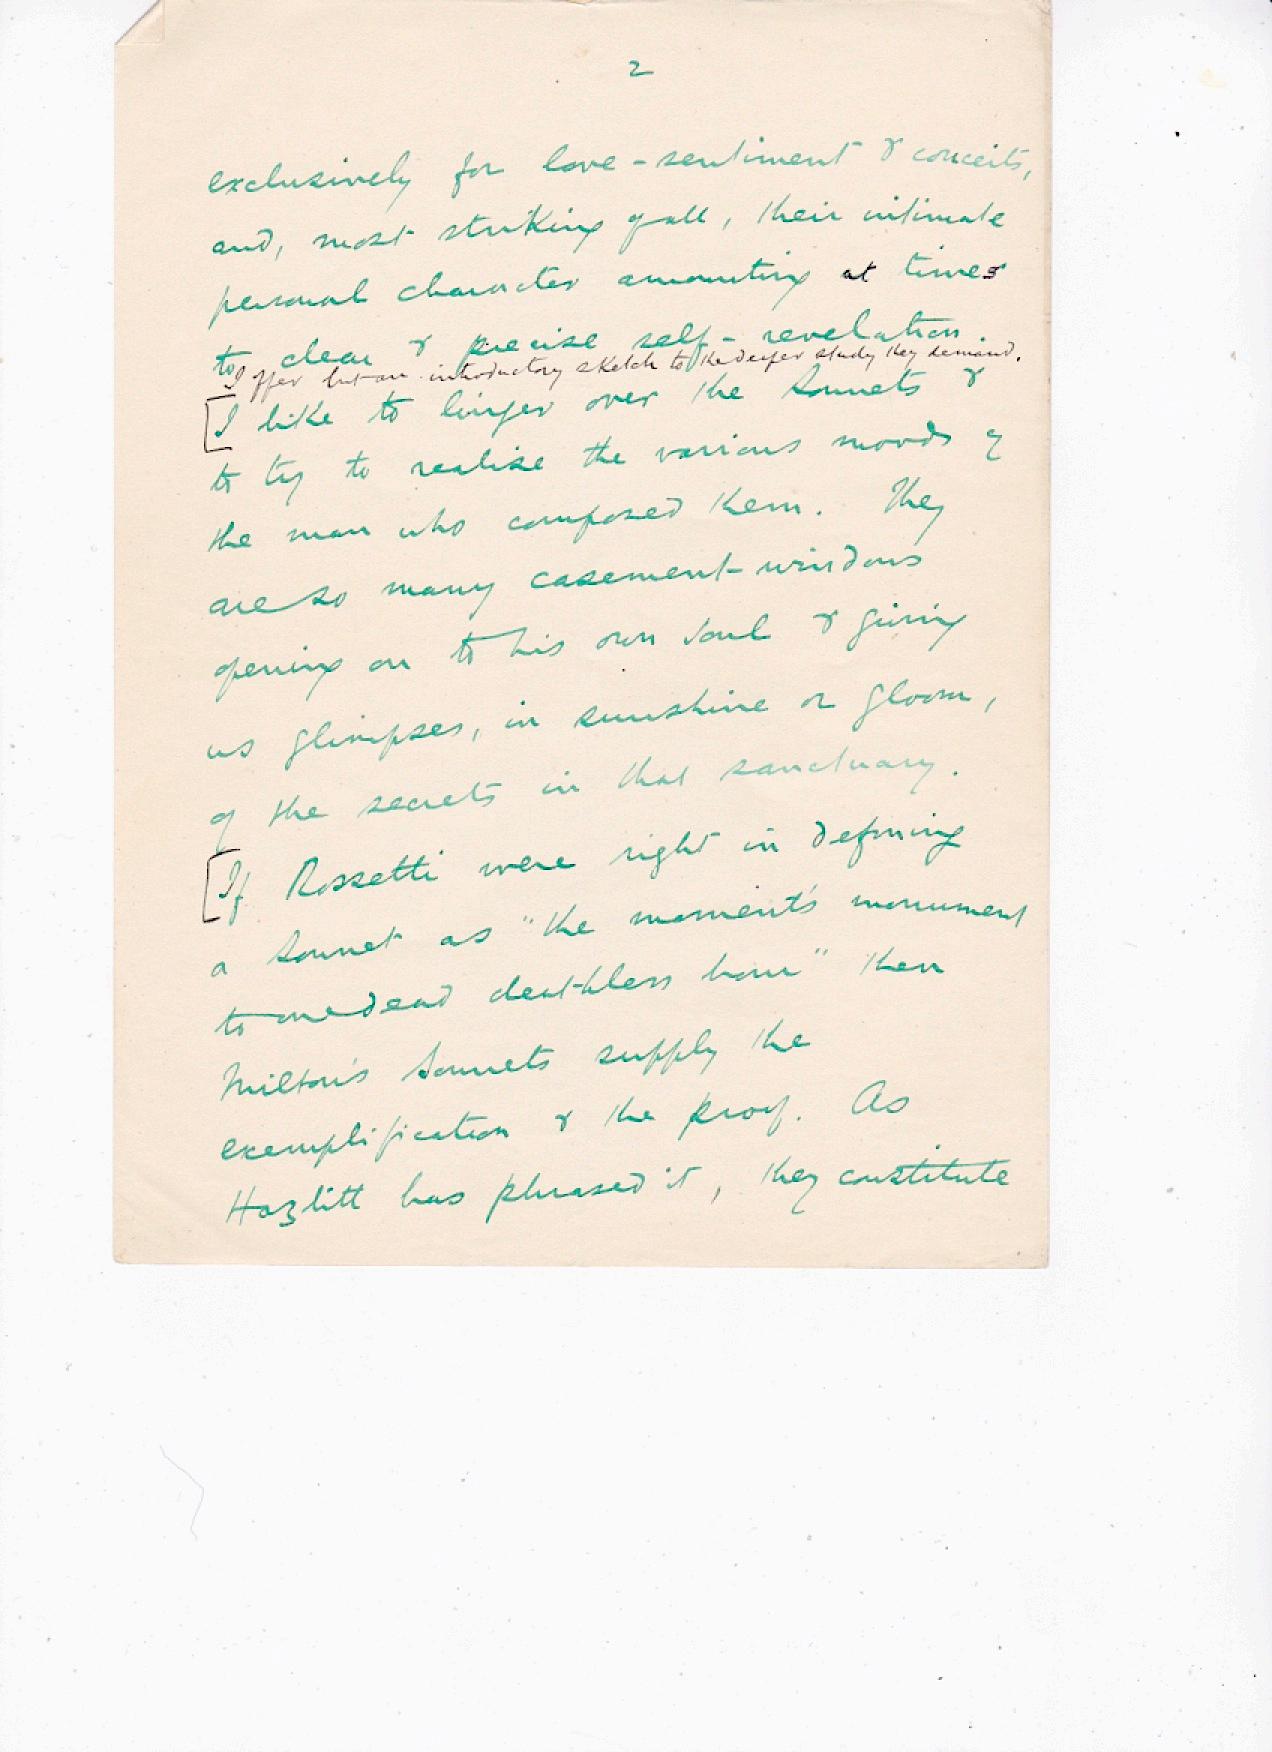 2
exclusively for love-sentiment & conceits,
and, most striking of all, their intimate
personal character amounting at times
to clear & precise self-revelation.
I offer but an introductory sketch to the deeper study they demand.
[I like to linger over the Sonnets &
to try to realise the various moods of
the man who composed them. They
are so many casement-windows
opening on to his own soul & giving
us glimpses, in sunshine or gloom,
of the secrets in that sanctuary.
[If Rossetti were right in defining
a Sonnet as "the moment's monument
to one dead deathless hour" then
Milton's Sonnets supply the
exemplification & the proof. As
Hazlitt has phrased it, they constitute